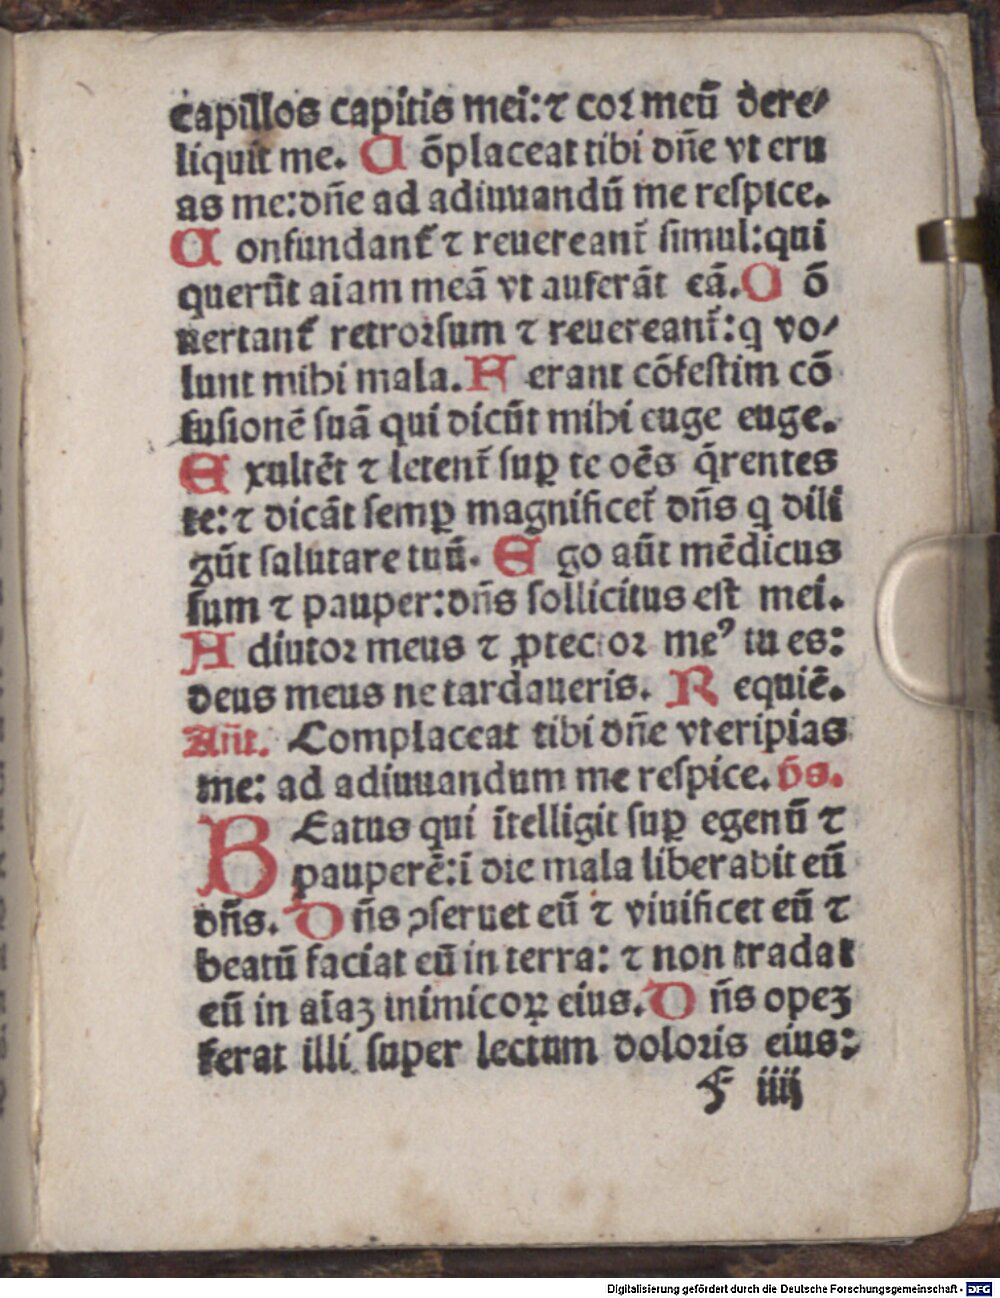 capillos capitis mei: ⁊ coꝛ meū dere⸗
liquit me. C ōplaceat tibi dn̄e vt eru
as me:dn̄e ad adiuuandū me reſpice.
C onfundant̄ ⁊ reuereant̄ ſimul:qui
querūt aīam meā vt auferāt eā. C ō
uertant̄ retroꝛſum ⁊ reuereant̄:q vo⸗
lunt mihi mala. F erant cōfeſtim cō
fuſionē ſuā qui dicūt mihi euge euge.
E xultēt ⁊ letent̄ ſuꝑ te oēs q̄rentes
te:⁊ dicāt ſemꝑ magnificet̄ dn̄s q dili
gūt ſalutare tuū. E go aūt mēdicus
ſum ⁊ pauper:dn̄s ſollicitus eſt mei.
A diutoꝛ meus ⁊ ꝓtectoꝛ meꝰ tu es:
deus meus ne tardaueris. R equiē.
Añt. Complaceat tibi dn̄e vt eripias
me: ad adiuuandum me reſpice. p̄s.
B Eatus qui ītelligit ſuꝑ egenū ⁊
pauperē:ī die mala liberabit eū
dn̄s. D n̄s ꝯſeruet eū ⁊ viuificet eū ⁊
beatū faciat eū in terra: ⁊ non tradat
eū in aīaꝫ inimicoꝝ eius. D n̄s opeꝫ
ferat illi ſuper lectum doloꝛis eius:
F iiij
Digitalisierung gefördert durch die Deutsche Forschungsgemeinschaft - DFG